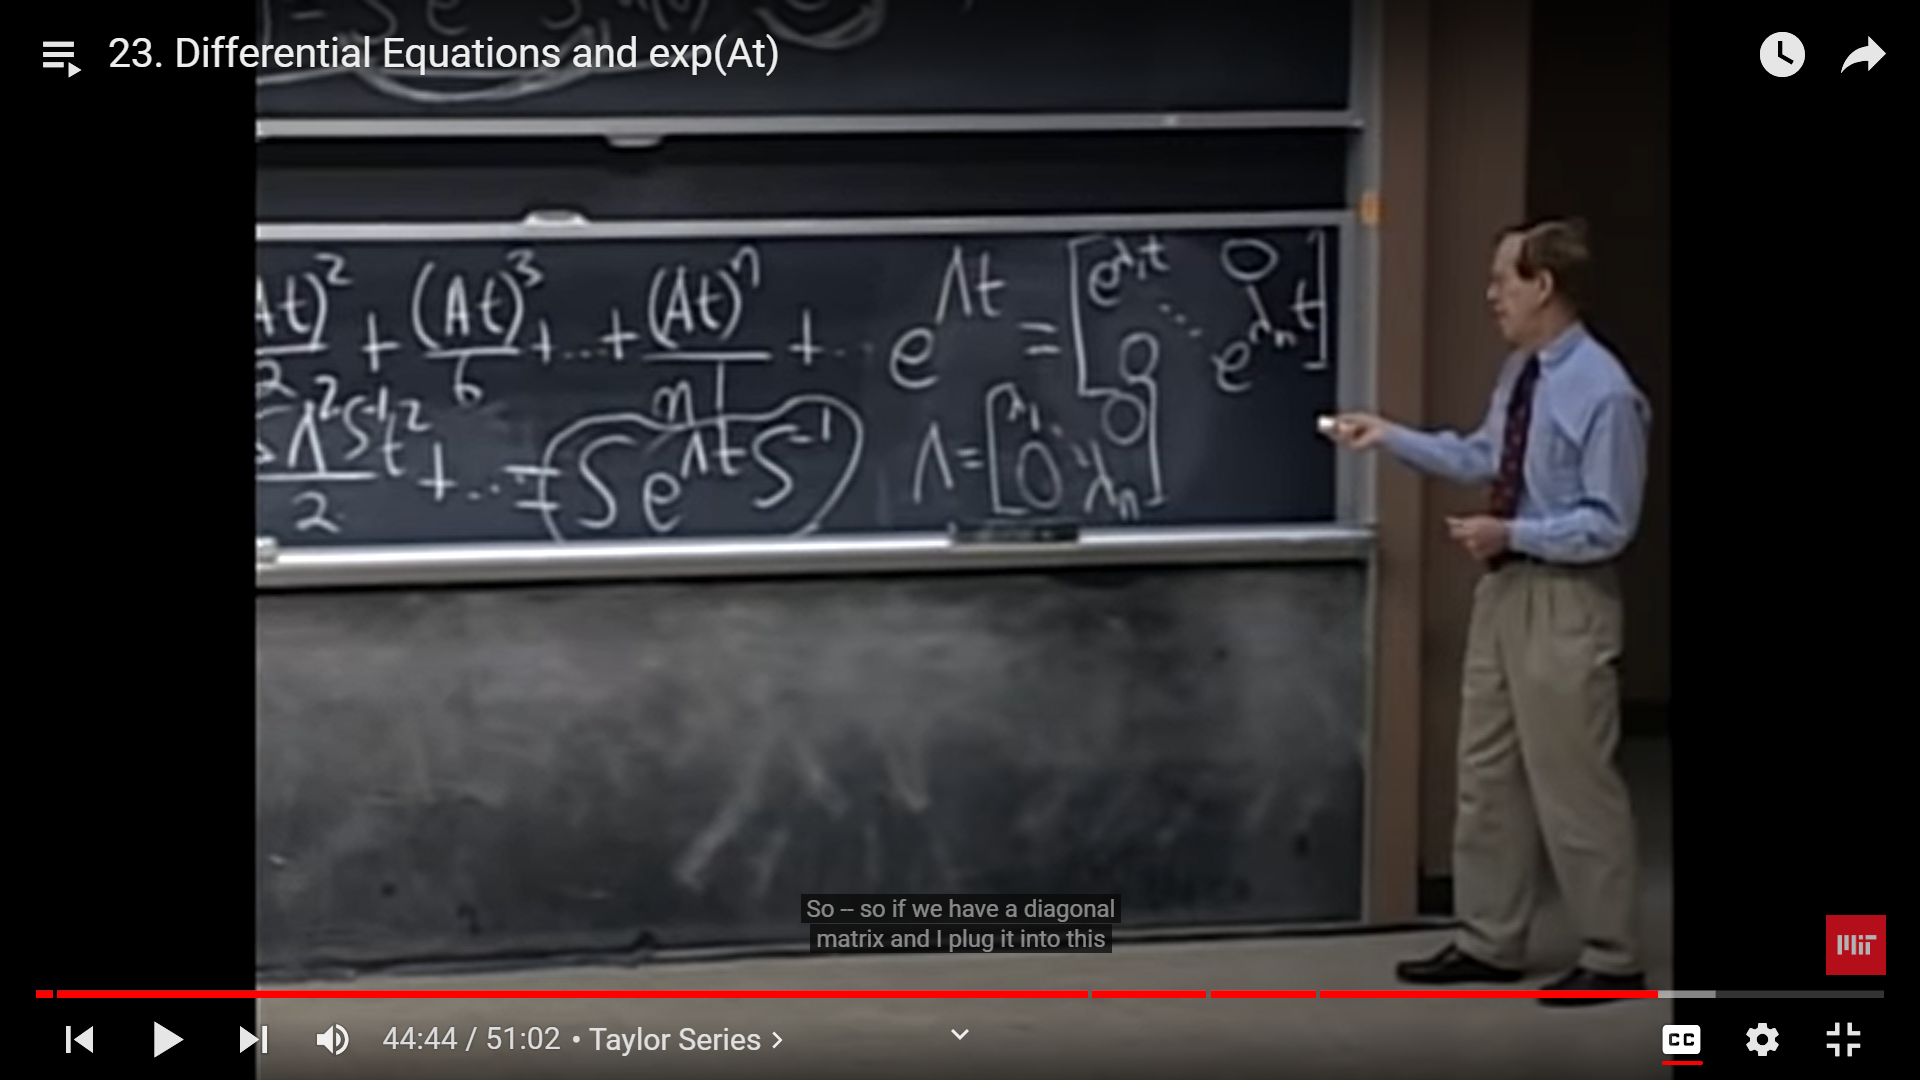 23. Differential Equations and exp(At)
At)²/2 + (At)³/6 + ... + (At)ⁿ/n! + ...
SΛ²S⁻¹t²/2 + ... = Se^ΛtS⁻¹
e^Λt = [e^λ₁t 0
⋱
0 e^λₙt]
Λ = [λ₁ 0
⋱
0 λₙ]
So -- so if we have a diagonal
matrix and I plug it into this
MIT
44:44 / 51:02 • Taylor Series >
CC